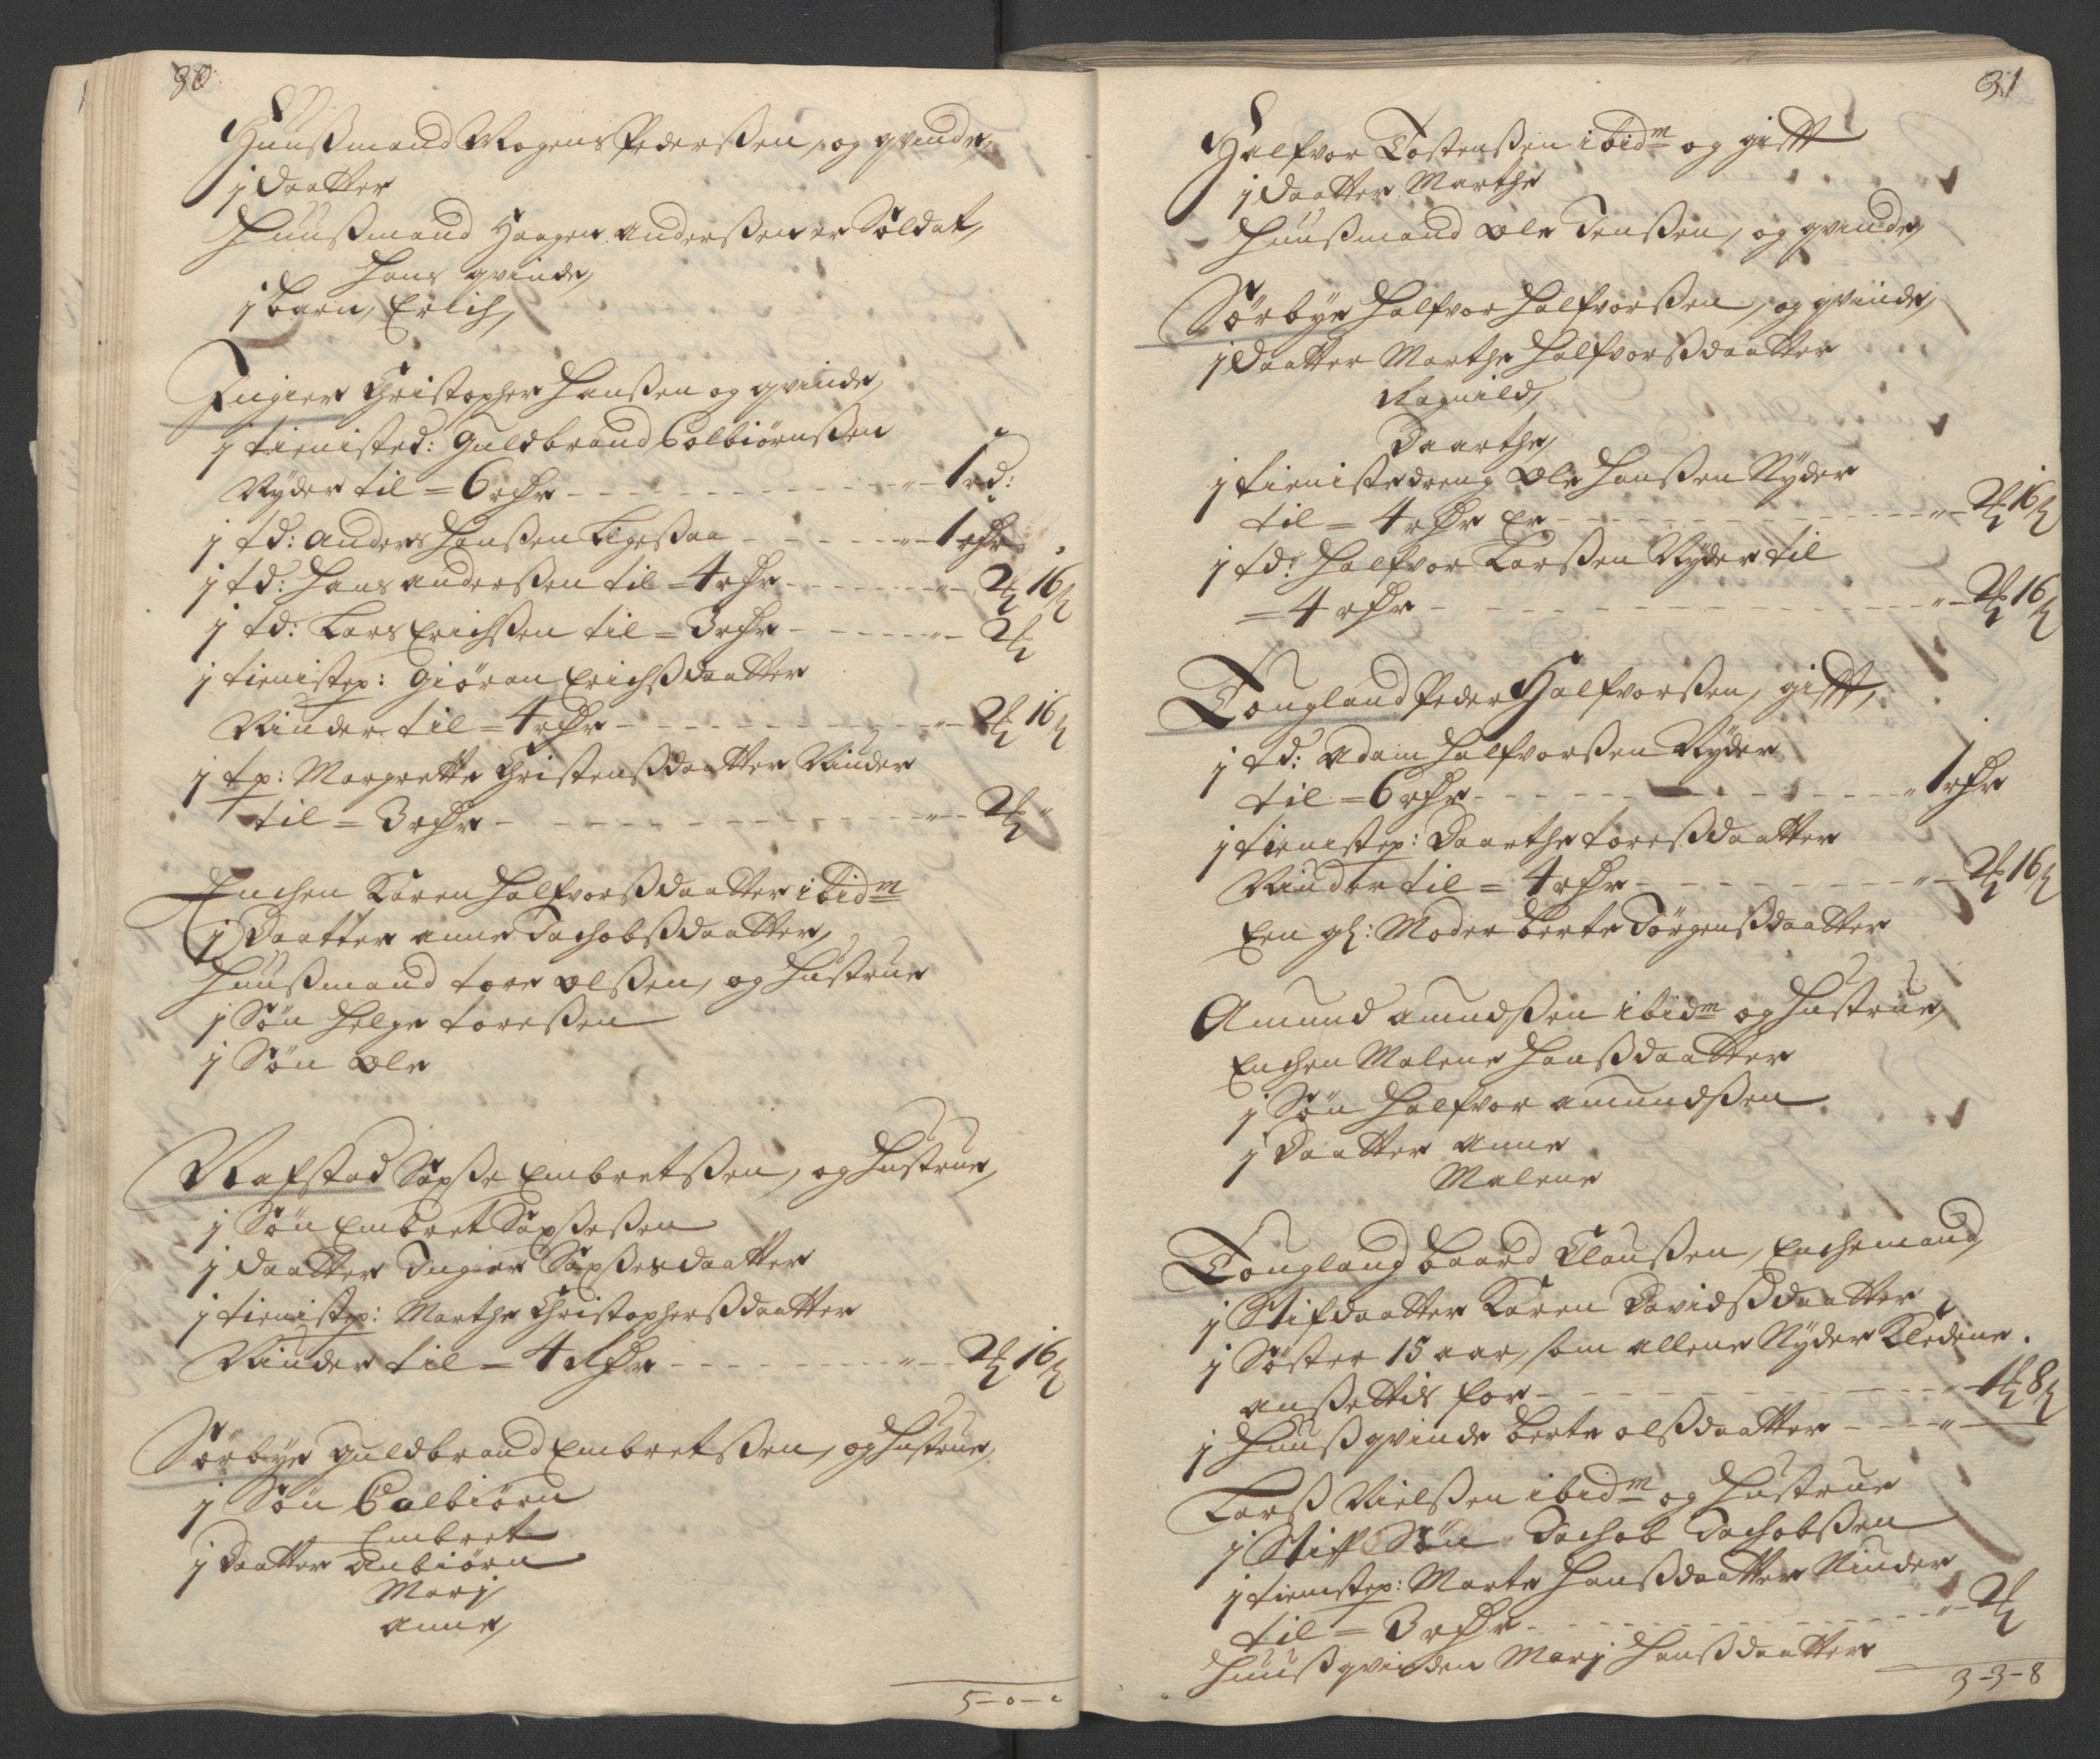 30
Huußmand Mogens Pederßen, og qvinde,
j Daatter
Huußmand Haagen anderßen er Soldat,
hans qvinde,
j barn, Erich,
Fugier Christopher Hanßen og qvinde,
j tienisted: Guldbrand Colbiörnßen
Nyder til = 6 rdr - - - 1 rd:
j td: anders Hanßen Ligeßaa - - - 1 rdr
j td: Hans anderßen til = 4 rdr - - - 2 ℔ 16 ß
j td: Lars Erichßen til = 3 rdr - - - 2 ℔
j tienistep: Giöran Erichßdaatter
Niuder til = 4 rdr - - - 2 ℔ 16 ß
j tp: Margrette Christenßdaatter Niuder
til = 3 rdr - - - 2 ℔ "
Enchen Karen Halfvorßdaatter ibidm
j Daatter anne Jachobßdaatter,
Huußmand tore olßen, og Hustrue
j Sön Helge toreßen
j Sön Ole
Rafstad Sopße Embretßen, og Hustrue,
j Sön Embret Sopßeßen
j Daatter Ingier Sopßesdaatter
j tienistep: Marthe Christopherßdaatter
Niuder til = 4 rdr - - - 2 ℔ 16 ß
Sörbye guldbrand Embretßen, og Hustrue,
j Sön Colbiörn
Embret
j Daatter anbiörn
Marj
anne,
5 - 0 - 0
31
Halfvor Tostenßen ibidm og gift
j Daatter Marthe
Huußmand Ole Jenßen, og qvinde,
Sörbye Halfvor Halfvorßen, og qvinde,
j Daatter Marthe Halfvorßdaatter
Ragnild,
Daarthe,
j tienistedreng Ole Hanßen Nyder
til = 4 rdr Er - - - 2 ℔ 16 ß
j td: Halfvor Larßen Nyder til
= 4 rdr - - - 2 ℔ 16 ß
Tougland Peder Halfvorßen, gift,
j td: Adam Halfvorßen Nyder
til = 6 rdr - - - 1 rdr
j tienistep: Daarthe toreßdaatter
Niuder til = 4 rdr - - - 2 ℔ 16 ß
Een gl: Moder berte Jörgenßdaatter
Amund amundßen ibidm og Hustrue,
Enchen Malene Hanßdaatter
j Sön Halfvor amundßen
j Daatter anne
Malene
Tougland baard Claußen, Enchemand,
j Stifdaatter Karen Davidßdaatter
j Söster 15 aar, som allene Nyder Klederne.
anßettis for - - - 1 ℔ 8 ß
j Huußqvinde berte olßdaatter - - - "
Larß Nielßen ibidm og Hustrue
j Stiff Sön Jachob Jachobßen
j tienistep: Marte Hanßdaatter Niuder
til = 3 rdr - - - 2 ℔
Huußqvinden Marj Hanßdaatter
3 - 3 - 8